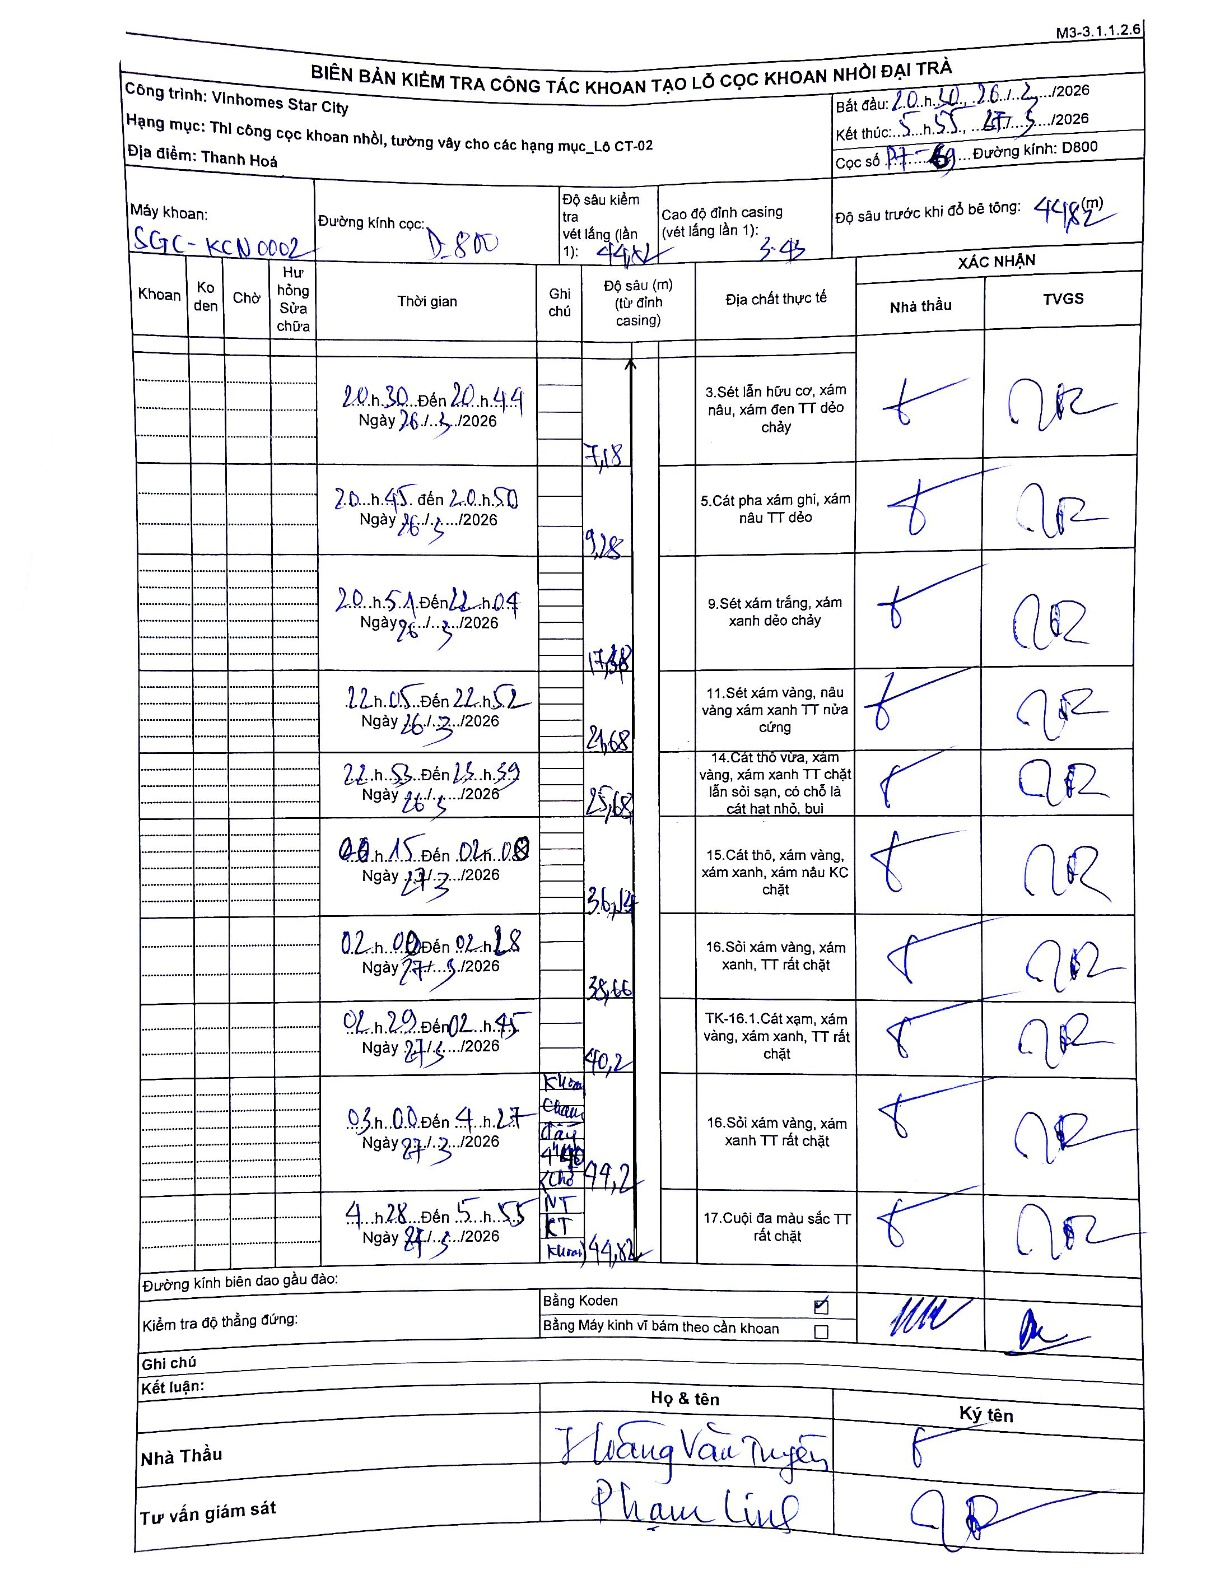 M3-3.1.1.2.6
BIÊN BẢN KIỂM TRA CÔNG TÁC KHOAN TẠO LỖ CỌC KHOAN NHỒI ĐẠI TRÀ
Công trình: Vinhomes Star City
Hạng mục: Thi công cọc khoan nhồi, tường vây cho các hạng mục_Lô CT-02
Địa điểm: Thanh Hoá
Bắt đầu: 20.h.30., 26./.3.../2026
Kết thúc: 5...h.55., ...27./.3.../2026
Cọc số P7-69 Đường kính: D800
Máy khoan:
SGC-KCN0002
Đường kính cọc:
D-800
Độ sâu kiểm tra
vét lắng (lần
1): 44,82
Cao độ đỉnh casing
(vét lắng lần 1):
3.43
Độ sâu trước khi đổ bê tông: 44,82 (m)
Khoan
Ko
den
Chờ
Hư
hỏng
Sửa
chữa
Thời gian
Ghi
chú
Độ sâu (m)
(từ đỉnh
casing)
Địa chất thực tế
XÁC NHẬN
Nhà thầu
TVGS
20.h.30...Đến 20.h.44
Ngày 26./.3../2026
7,18
3.Sét lẫn hữu cơ, xám
nâu, xám đen TT dẻo
chảy
20...h.45. đến 20.h.50
Ngày 26./.3.../2026
9,28
5.Cát pha xám ghi, xám
nâu TT dẻo
20...h.51.Đến 22.h.04
Ngày 26./..3../2026
17,38
9.Sét xám trắng, xám
xanh dẻo chảy
22h.05..Đến 22.h.52
Ngày 26./.3.../2026
21,68
11.Sét xám vàng, nâu
vàng xám xanh TT nửa
cứng
22.h.53..Đến 23.h.39
Ngày 26./.3.../2026
25,68
14.Cát thô vừa, xám
vàng, xám xanh TT chặt
lẫn sỏi sạn, có chỗ là
cát hạt nhỏ, bụi
00.h.15..Đến 02h.00
Ngày 27./.3../2026
36,14
15.Cát thô, xám vàng,
xám xanh, xám nâu KC
chặt
02.h..00 Đến 02.h.28
Ngày 27./...3./2026
38,66
16.Sỏi xám vàng, xám
xanh, TT rất chặt
02.h.29.Đến 02..h.45
Ngày 27/.3.../2026
40,2
TK-16.1.Cát xạm, xám
vàng, xám xanh, TT rất
chặt
03h..00 Đến 4..h.27
Ngày 27/.3.../2026
Khoan
Chạm
đáy
44,2
16.Sỏi xám vàng, xám
xanh TT rất chặt
4..h28...Đến .5..h..55
Ngày 27/.3.../2026
NT
KT
Khoan
44,82
17.Cuội đa màu sắc TT
rất chặt
Đường kính biên dao gầu đào:
Kiểm tra độ thẳng đứng:
Bằng Koden
Bằng Máy kinh vĩ bám theo cần khoan
Ghi chú
Kết luận:
Họ & tên
Ký tên
Nhà Thầu
Hoàng Văn Tuyến
Tư vấn giám sát
Phạm Linh